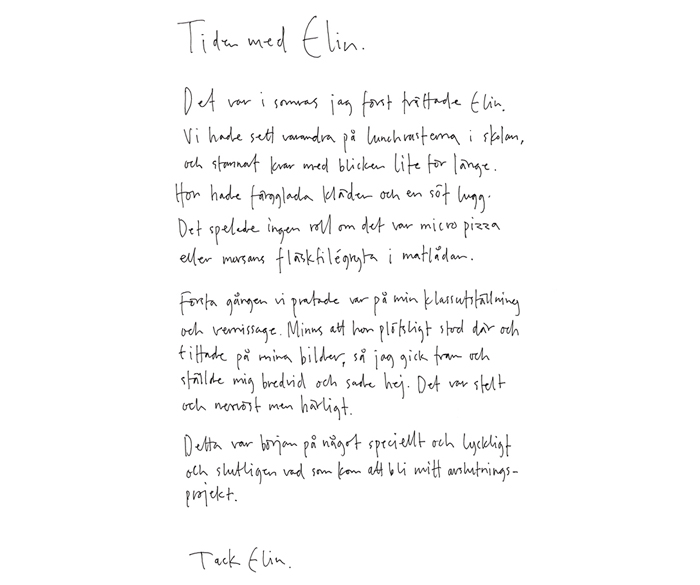 Tiden med Elin.
Det var i somras jag först träffade Elin.
Vi hade sett varandra på lunchrasterna i skolan,
och stannat kvar med blicken lite för länge.
Hon hade färgglada kläder och en söt lugg.
Det spelade ingen roll om det var micro pizza
eller morsans fläskfilégryta i matlådan.
Första gången vi pratade var på min klassutställning
och vernissage. Minns att hon plötsligt stod där och
tittade på mina bilder, så jag gick fram och
ställde mig bredvid och sade hej. Det var stelt
och nervöst men härligt.
Detta var början på något speciellt och lyckligt
och slutligen vad som kom att bli mitt avslutnings-
projekt.
Tack Elin.